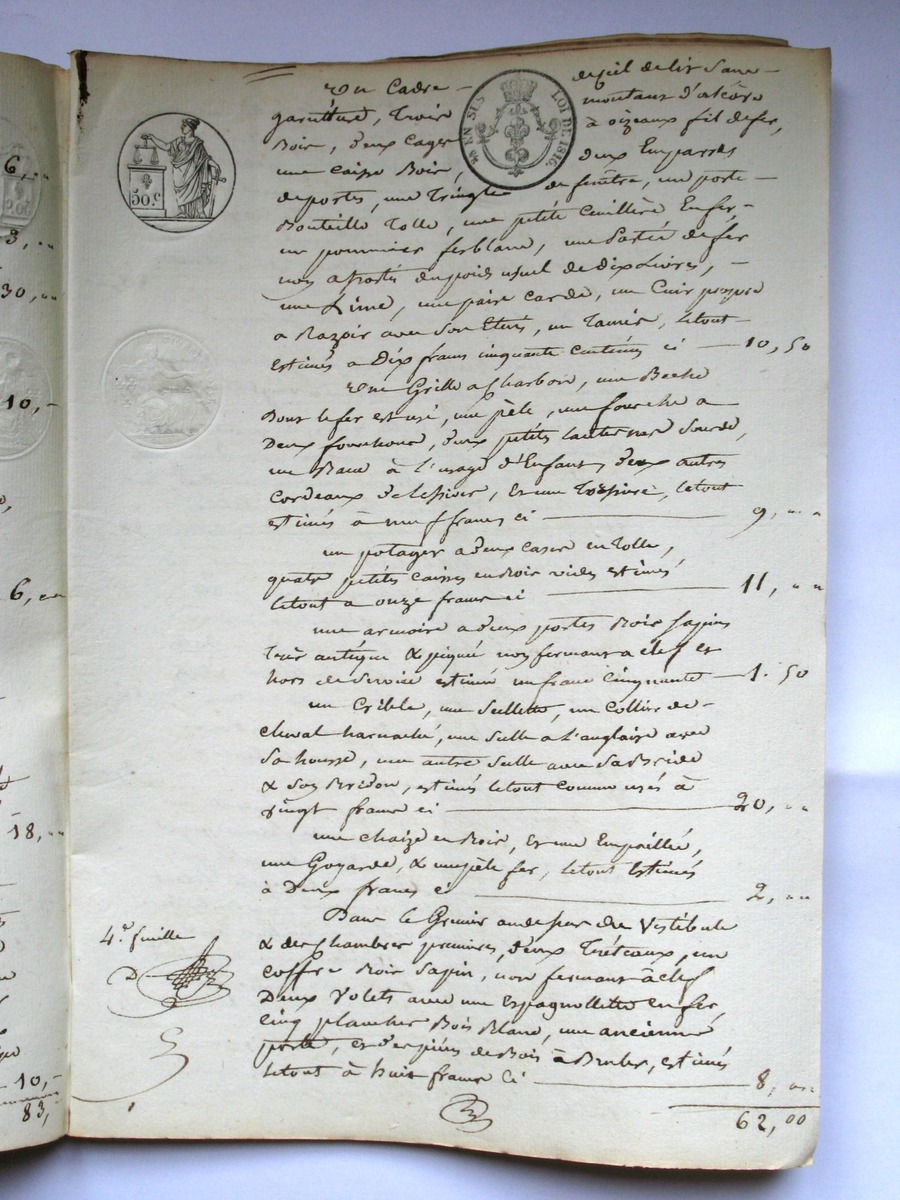 6, ,,
3, ,,
30, ,,
10, -
6, ,,
18, ,,
10, -
83,
50 C
EN SUS LOI DE 1816.
Un Cadre de ciel de lit Sans
garniture, Trois montans d'alcôve
Bois, deux Cages à oizeaux fil de fer,
une caisse Bois, deux Emparres
de portes, une Tringle de fenêtre, un porte
Bouteille Tolle, une petite Cuillère En fer
un pommier ferblanc, une Partie de fer
du poids usuel de Dix Livres,
une Lime, une paire Carde, un Cuir propre
a Razoir avec Son Etuis, un Tamis, le tout
estimés a Dix francs cinquante centimes ci 10, 50
Une Grille a Charbon, une Beche
Dont le fer est usé, une pèle, une fourche a
Deux fourchons, deux petites lanternes Sourde,
un Banc à l'usage d'Enfant, deux autres
Cordeaux de lessive, et une le tout
estimés à neuf francs ci 9, ,, ,,
un potager a deux cases en Tolle,
quatre petites caisses en Bois vides estimés
le tout a onze francs ci 11, ,, ,,
une armoire a deux portes Bois Sapin
Très antique & piqué non fermant a clef et
hors de Service estimé un franc Cinquante 1. 50
un Crible, une Sellette, un Collier de
cheval harnaché, une Selle a l'anglaise avec
Sa housse, une autre Selle avec Sa Bride
& Son Bridon, estimés le tout comme usés à
vingt francs ci 20, ,, ,,
une chaize en Bois, et une Empaillée,
une Goyarde, & une pèle fer, le tout Estimés
à Deux francs ci 2, ,, ,,
Dans le Grenier au dessus du Vestibule
& des Chambres premières, deux Tréteaux, un
coffre Bois Sapin, non fermant à clef
Deux Volets avec une Espagnollette en fer,
Cinq planches Bois Blanc, une ancienne
porte, et des pièces de Bois à Bruler, estimés
le tout à huit francs Ci 8, ,, ,,
62, 00
4.e feuille
D